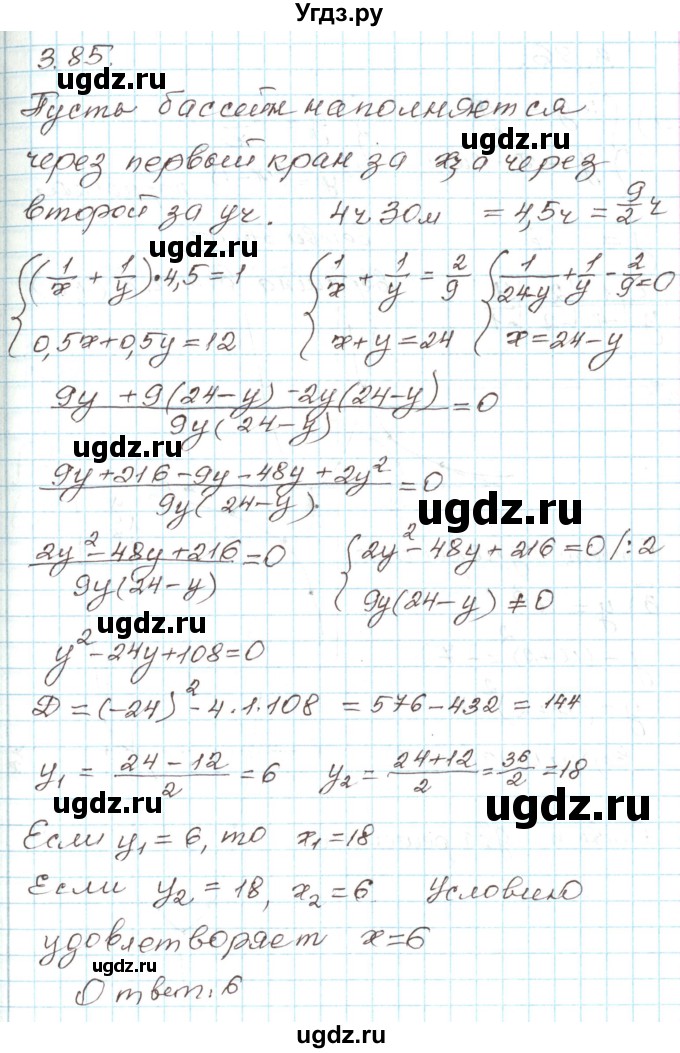 Угдз.ру
3.85.
Пусть бассейн наполняется
ugdz.ru
через первый кран за x, а через
второй за y ч. 4ч 30м = 4,5ч = 9/2 ч
ugdz.ru
{ (1/x + 1/y)·4,5 = 1 { 1/x + 1/y = 2/9 { 1/(24-y) + 1/y - 2/9 = 0
0,5x + 0,5y = 12 x + y = 24 x = 24 - y
(9y + 9(24 - y) - 2y(24 - y))/(9y(24 - y)) = 0
ugdz.ru
(9y + 216 - 9y - 48y + 2y²)/(9y(24 - y)) = 0
ugdz.ru
(2y² - 48y + 216)/(9y(24 - y)) = 0 { 2y² - 48y + 216 = 0 /:2
9y(24 - y) ≠ 0
ugdz.ru
y² - 24y + 108 = 0
D = (-24)² - 4·1·108 = 576 - 432 = 144
ugdz.ru
y₁ = (24 - 12)/2 = 6 y₂ = (24 + 12)/2 = 36/2 = 18
ugdz.ru
Если y₁ = 6, то x₁ = 18
Если y₂ = 18, x₂ = 6 Условию
удовлетворяет x = 6
ugdz.ru
Ответ: 6
ugdz.ru